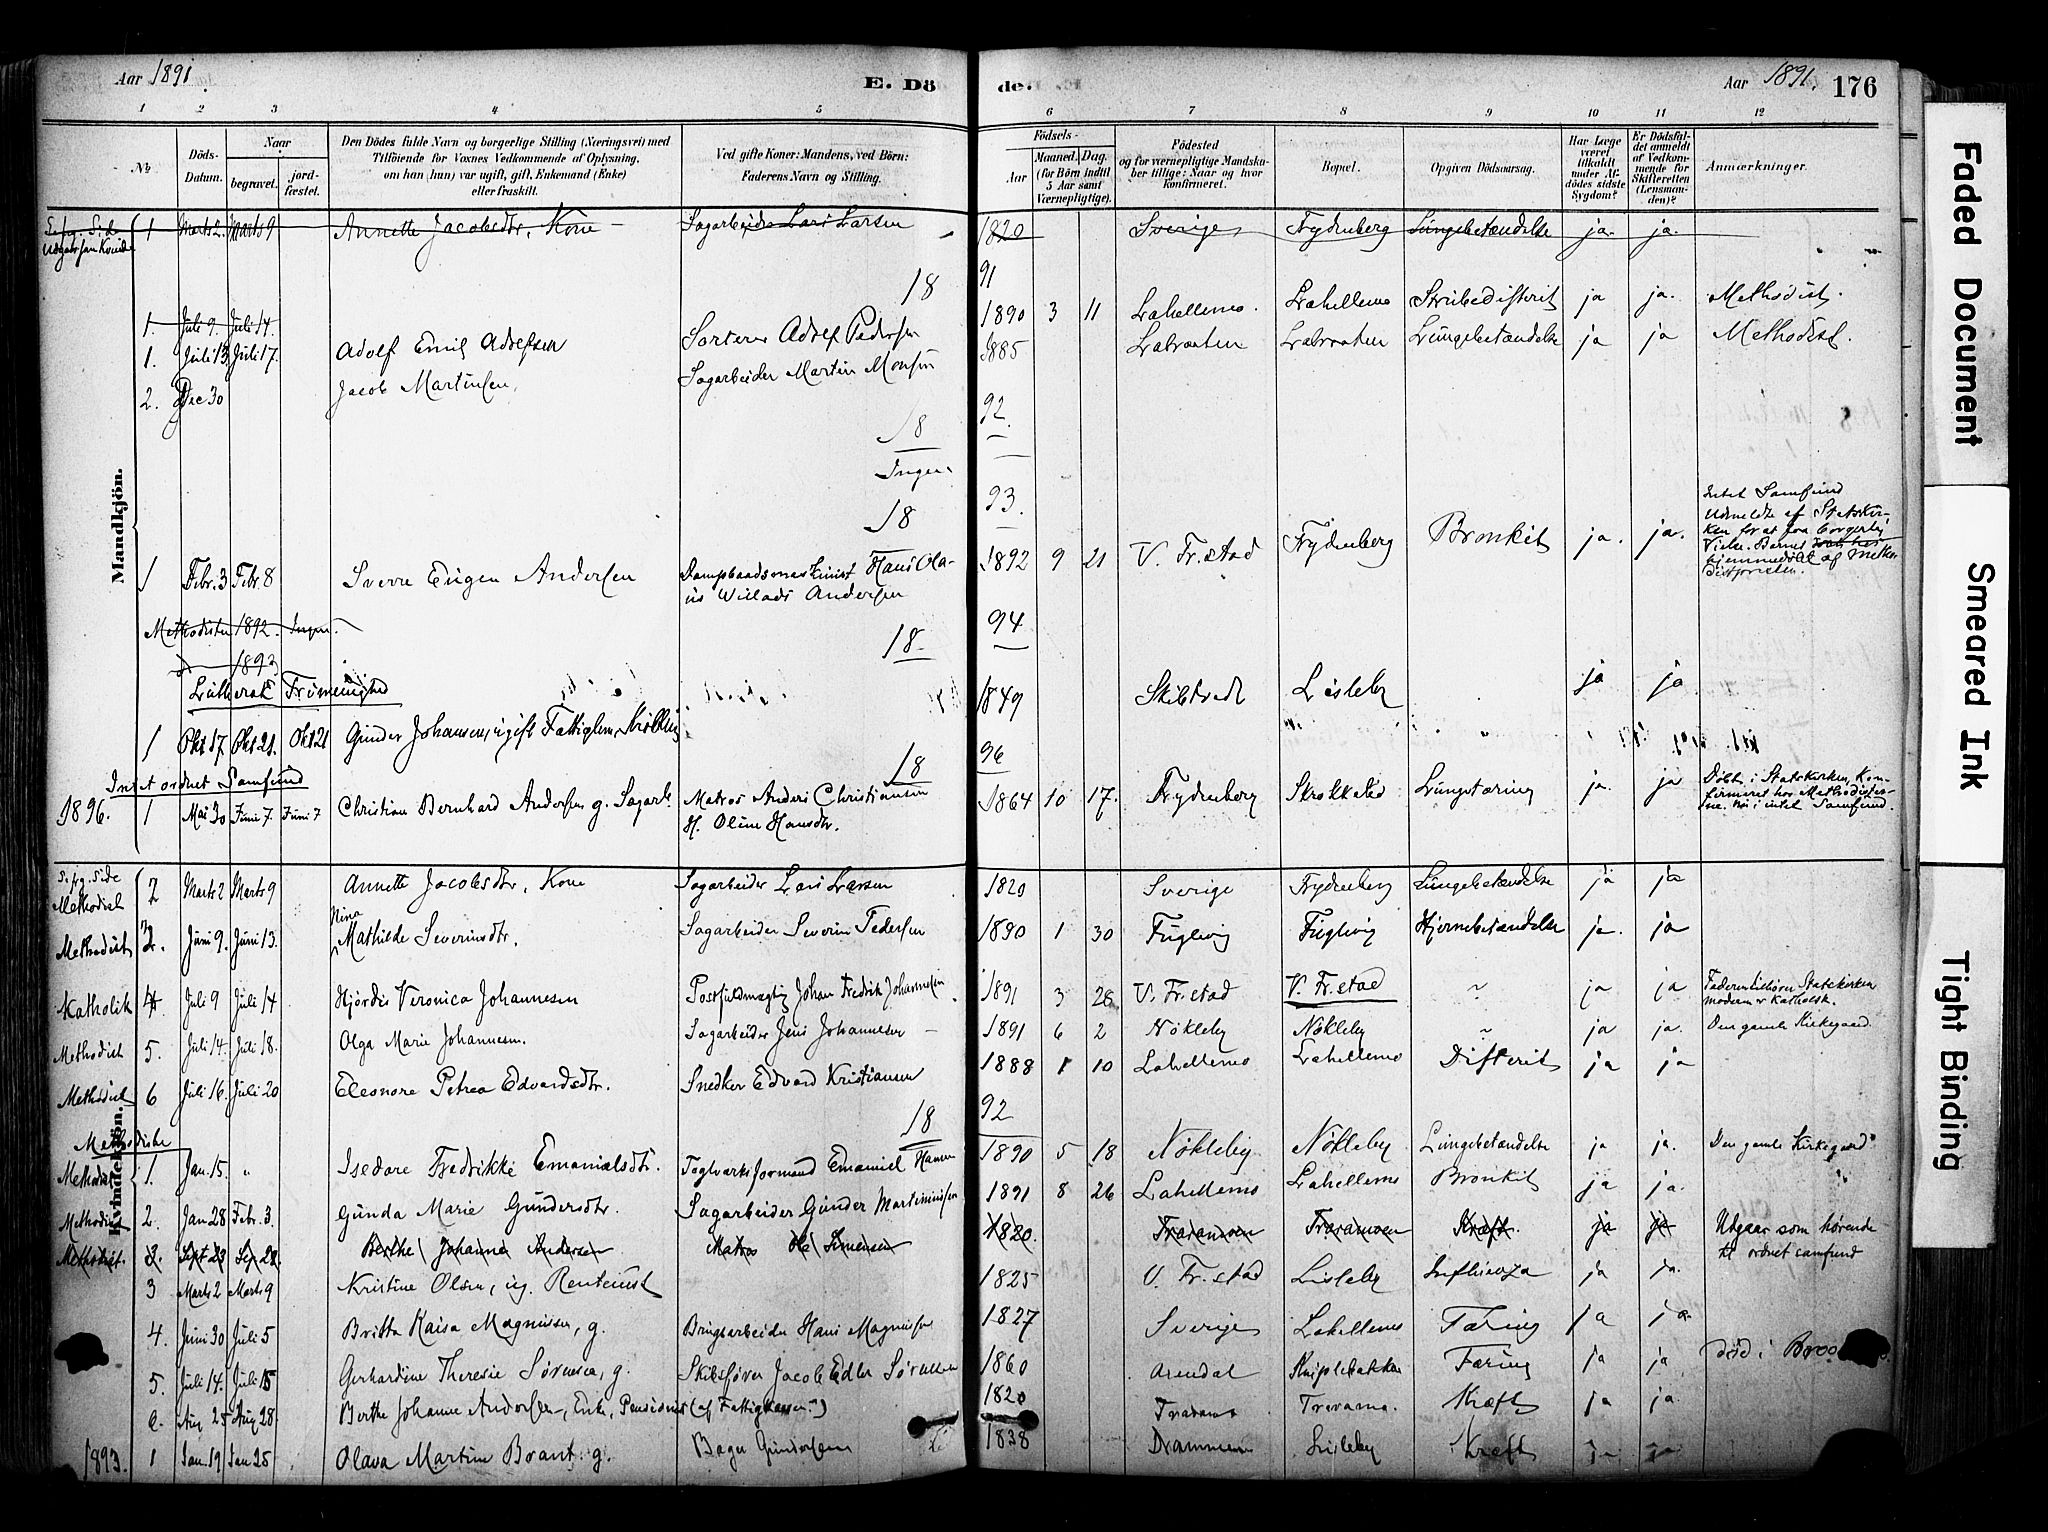 Aar 1891. E. Döde. Aar 1891. 176
1 2 3 4 5 6 7 8 9 10 11 12
No Döds-Datum. Naar begravet. jord-fæstet. Den Dödes fulde Navn og borgerlige Stilling (Næringsvei) med Tilföiende for Voxnes Vedkommende af Oplysning, om han (hun) var ugift, gift, Enkemand (Enke) eller fraskilt. Ved gifte Koner: Mandens, ved Börn: Faderens Navn og Stilling. Födsels- Aar Maaned. Dag. (for Börn indtil 5 Aar samt Værnepligtige). Födested og for værnepligtige Mandskaber tillige: Naar og hvor konfirmeret. Bopæl. Opgiven Dödsaarsag. Har Læge været tilkaldt under Afdödes sidste Sygdom? Er Dödsfaldet anmeldt af Vedkommende for Skifteretten (Lensmanden)? Anmærkninger.
Mandkjön.
1 Marts 2. Marts 9 Annette Jacobsdtr, Kone Sagarbeider Lars Larsen 1820 Sverige Frydenberg Lungebetændelse ja. ja.
18 91
1. Juli 9. Juli 14. 1890 3 11 Lahellemo. Lahellemo Strubedifterit ja ja. Methodist.
1. Juli 13 Juli 17. Adolf Emil Adolfsen Sorterer Adolf Pedersen 1885 Labraaten Labraaten Lungebetændelse ja ja Methodist.
2. Dec 30 Jacob Martinsen, Sagarbeider Martin Monsen
18 92.
Ingen
18 93.
1 Febr. 3 Febr. 8 Sverre Eugen Andersen Dampbaadsmaskinist Hans Olaus Willads Andersen 1892 9 21 V. Fr.stad Frydenberg Bronkit ja. ja. Intet Samfund Udmeldte af Statskirken for at faa borgerlig Vielse. Barnet hjemmedöbt af
Methodister 1892. Ingen.
1893
18 94
Luthersk Frimenighed
1 Okt 17 Okt 21. Okt 21 Gunder Johansen, ugift Fattiglem, Krökling 1849 Skibtvedt Lisleby ja ja
Intet ordnet Samfund
18 96
1896. 1 Mai 30 Juni 7. Juni 7 Christian Bernhard Andersen g. Sagarb. Matros Anders Christiansen H. Oline Hansdtr. 1864 10 17. Frydenberg Skrokkelid Lungetæring ja. ja Döbt i Statskirken, Konfirmeret hos Methodisterne. Nu i intet Samfund.
Kvindekjön.
Methodist 2 Marts 2 Marts 9 Annette Jacobsdtr, Kone Sagarbeider Lars Larsen 1820 Sverige Frydenberg Lungebetændelse ja ja
Methodist 3. Juni 9. Juni 13. Nina Mathilde Severinsdtr. Sagarbeider Severin Pedersen 1890 1 30 Fuglevig Fuglevig Hjernebetændelse ja. ja
Katholik 4 Juli 9 Juli 14 Hjördis Veronica Johannesen Postfuldmægtig Johan Fredrik Johannesen 1891 3 28 V. Fr.stad V. Fr.stad " ja ja Faderen tilhörer Statskirken moderen er Katholsk.
Methodist 5. Juli 14. Juli 18. Olga Marie Johannesen. Sagarbeider Jens Johannesen 1891 6 2 Nökleby Nökleby " ja ja. Den gamle Kirkegaard
Methodist 6 Juli 16. Juli 20 Eleonore Petrea Edvardsdtr. Snedker Edvard Kristiansen 1888 1 10 Lahellemo Lahellemo Difterit ja ja
18 92
Methodister
Methodist 1. Jan. 15. " Isedore Fredrikke Emanuelsdtr. Teglverksformand Emanuel Hansen 1890 5 18 Nökleby Nökleby Lungebetændelse ja ja. Den gamle Kirkegaard
Methodist 2. Jan 28 Febr. 3. Gunda Marie Gundersdtr. Sagarbeider Gunder Martiniussen 1891 8 26 Lahellemo Lahellemo Bronkit ja ja. "
Methodist. 3. Sept 23 Sep 28. Berthe Johanne Andersen Matros Ole Simensen 1820. Traramoen Kræft. ja ja Udgaar som hörende til ordnet samfund
3 Marts 2 Marts 9 Kristine Olsen, ug. Rentenist 1825 V. Fr.stad Lisleby Influenza ja ja.
4. Juni 30 Juli 5 Britta Kaisa Magnussen, g. Brugsarbeider Hans Magnussen 1827 Sverige Lahellemo Tæring ja ja
5. Juli 14. Juli 15 Gerhardine Theresie Sörensen, g. Skibsförer Jacob Edler Sörensen 1860 Arendal Tæring ja ja död i
6. Aug 25 Aug 28. Berthe Johanne Andersen, Enke, Pensionist (af Fattigkassen) 1820 Kræft ja ja.
1893. 1 Jan. 19 Jan 25 Olava Martine Brant. g. Gundersen 1838 Drammen Lisleby Kræft ja ja
Faded Document
Smeared Ink
Tight Binding